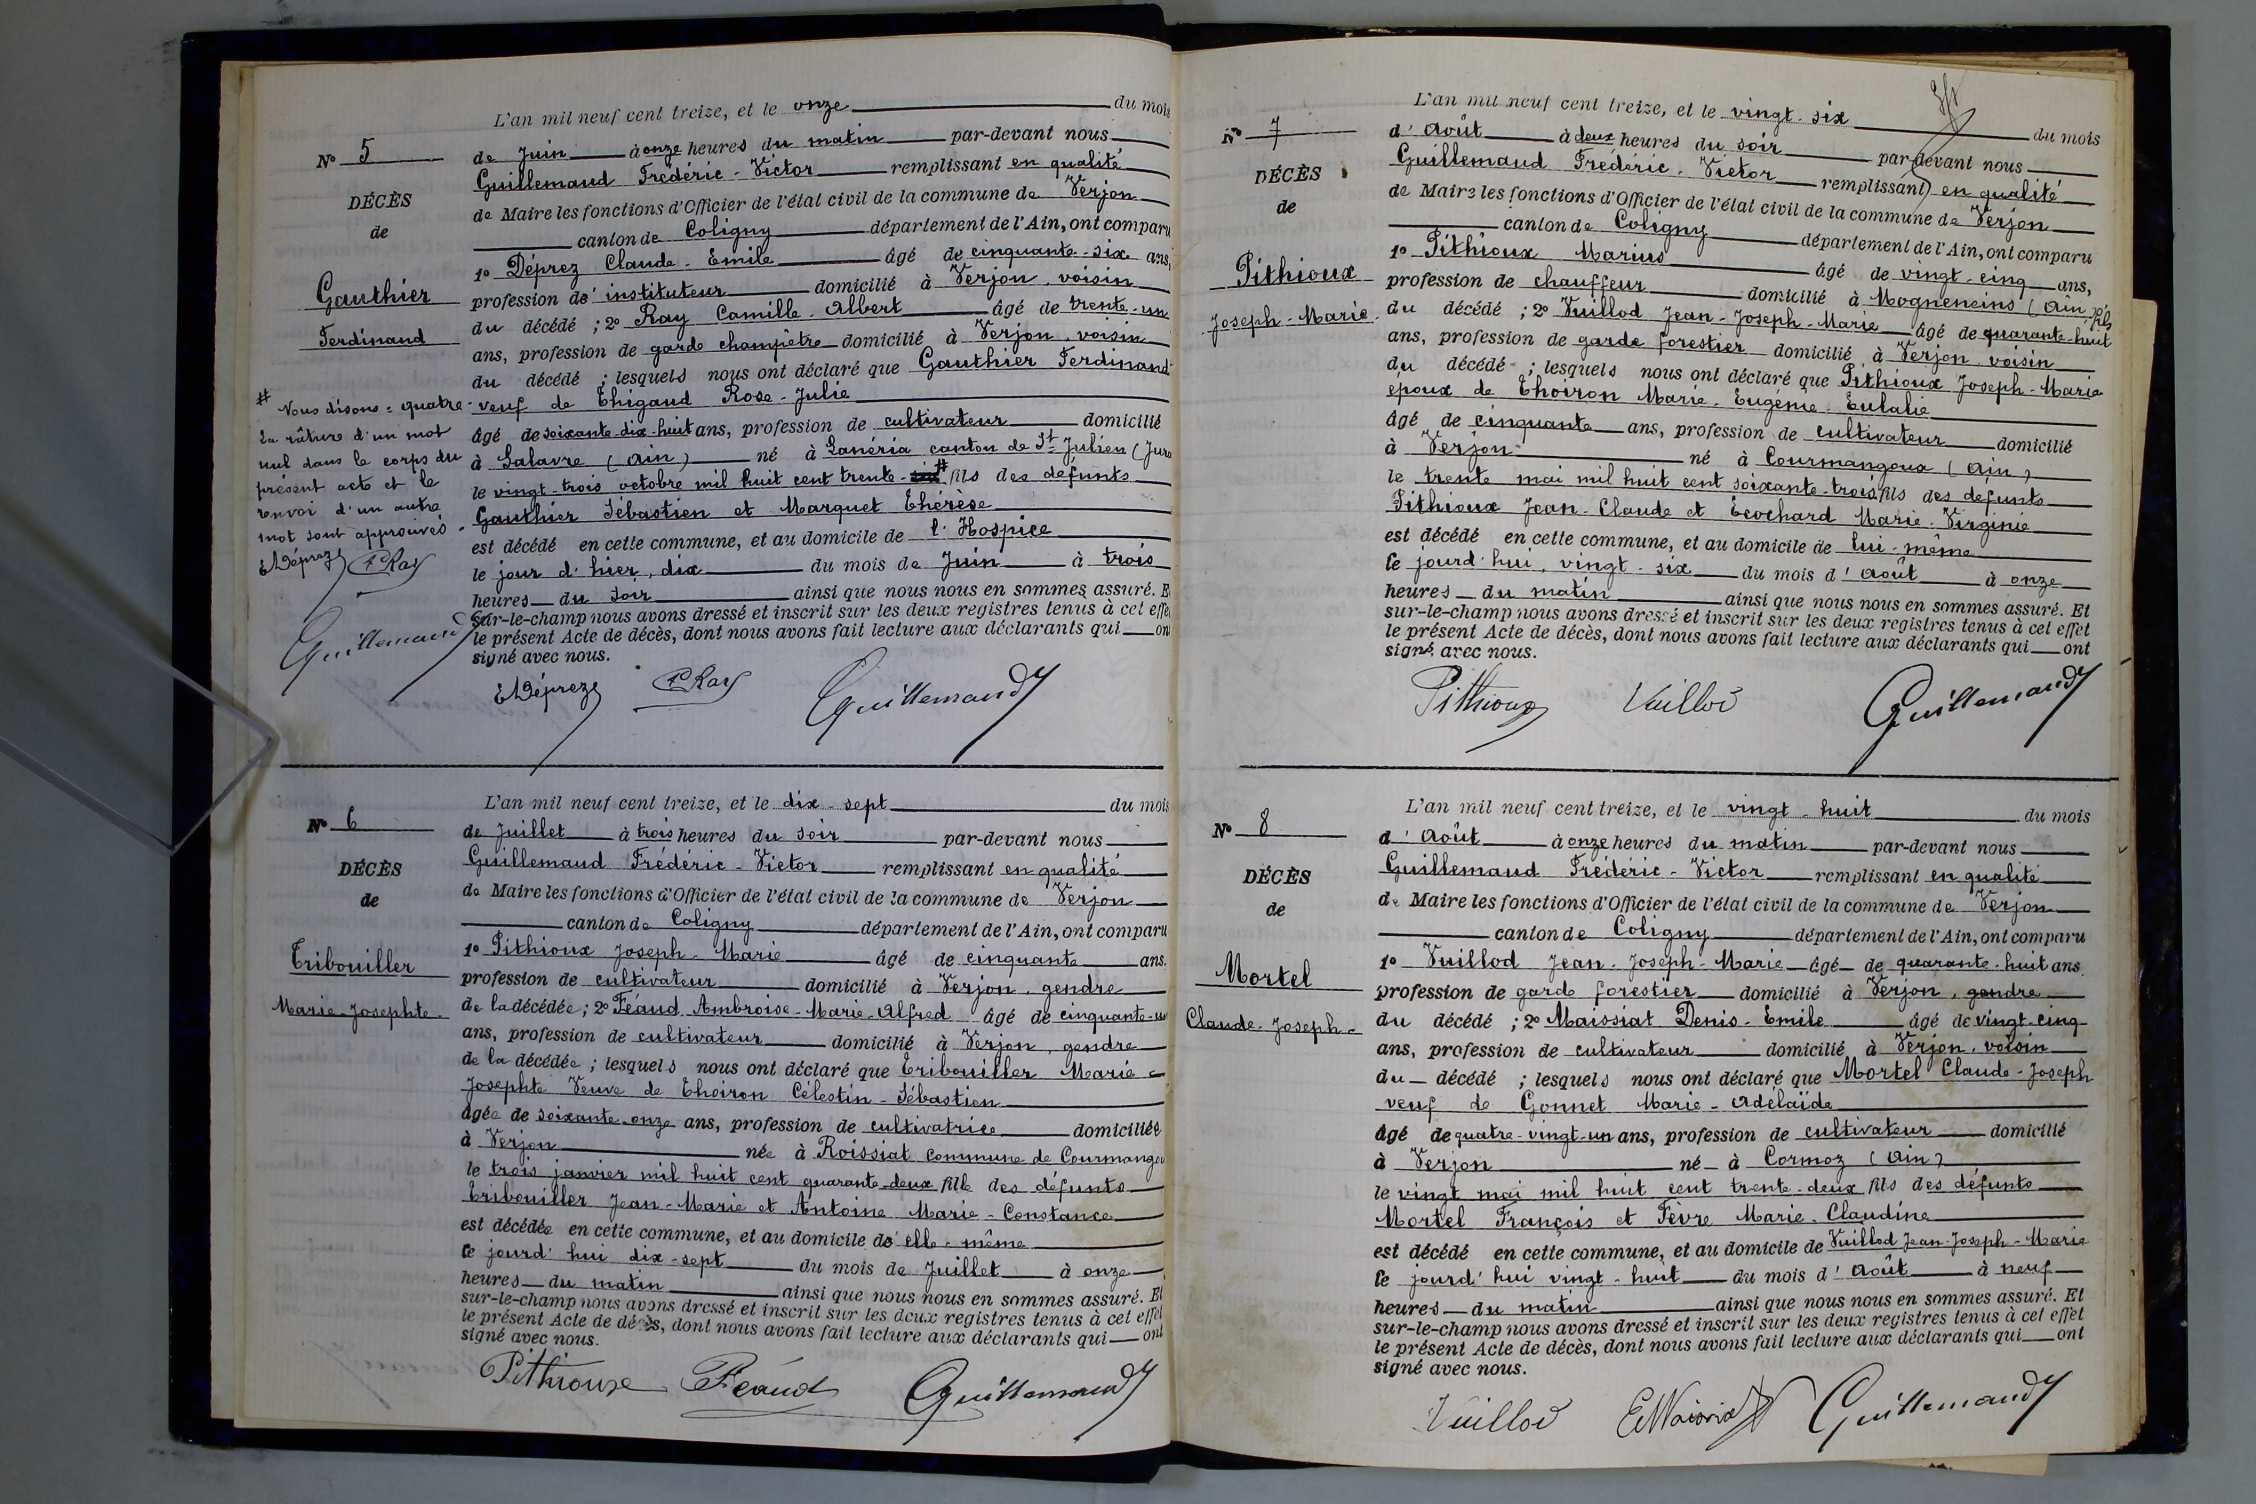 L'an mil neuf cent treize, et le onze du mois
N° 5
de Juin à onze heures du matin par-devant nous
Guillemaud Frédéric-Victor remplissant en qualité
DÉCÈS
de Maire les fonctions d'Officier de l'état civil de la commune de Verjon
de
canton de Coligny département de l'Ain, ont comparu
1° Déprez Claude-Emile âgé de cinquante-six ans,
Gauthier
profession d'instituteur domicilié à Verjon, voisin
du décédé ; 2° Ray Camille-Albert âgé de trente-un
Ferdinand
ans, profession de garde champêtre domicilié à Verjon, voisin
du décédé ; lesquels nous ont déclaré que Gauthier Ferdinand
veuf de Thigaud Rose-Julie
âgé de soixante-dix-huit ans, profession de cultivateur domicilié
à Salavre (Ain) né à Lanéria canton de St Julien (Jura
le vingt-trois octobre mil huit cent trente- # fils des défunts
Gauthier Sébastien et Marquet Thérèse
est décédé en cette commune, et au domicile de l'Hospice
le jour d'hier, dix du mois de Juin à trois
heures du soir ainsi que nous nous en sommes assuré. E
sur-le-champ nous avons dressé et inscrit sur les deux registres tenus à cet effe
le présent Acte de décès, dont nous avons fait lecture aux déclarants qui on
signé avec nous.
# Nous disons = quatre
La râture d'un mot
nul dans le corps du
présent acte et le
renvoi d'un autre
mot sont approuvés
EDéprez CRay
Guillemaud
EDéprez CRay Guillemaud
L'an mil neuf cent treize, et le dix-sept du mois
N° 6
de Juillet à trois heures du soir par-devant nous
Guillemaud Frédéric-Victor remplissant en qualité
DÉCÈS
de Maire les fonctions d'Officier de l'état civil de la commune de Verjon
de
canton de Coligny département de l'Ain, ont comparu
1° Pithioux Joseph-Marie âgé de cinquante ans.
Tribouiller
profession de cultivateur domicilié à Verjon, gendre
Marie-Josephte
de la décédée ; 2° Féaud Ambroise-Marie-Alfred âgé de cinquante-un
ans, profession de cultivateur domicilié à Verjon, gendre
de la décédée ; lesquels nous ont déclaré que Tribouiller Marie
Josephte Veuve de Thoiron Célestin-Sébastien
âgée de soixante-onze ans, profession de cultivatrice domiciliée
à Verjon née à Roissiat commune de Courmangou
le trois janvier mil huit cent quarante-deux fille des défunts
Tribouiller Jean-Marie et Antoine Marie-Constance
est décédée en cette commune, et au domicile d'elle-même
le jourd'hui dix-sept du mois de Juillet à onze
heures du matin ainsi que nous nous en sommes assuré. Et
sur-le-champ nous avons dressé et inscrit sur les deux registres tenus à cet effet
le présent Acte de décès, dont nous avons fait lecture aux déclarants qui ont
signé avec nous.
Pithioux Féaud Guillemaud
L'an mil neuf cent treize, et le vingt-six du mois
N° 7
d'Août à deux heures du soir par-devant nous
Guillemaud Frédéric-Victor remplissant en qualité
DÉCÈS
de Maire les fonctions d'Officier de l'état civil de la commune de Verjon
de
canton de Coligny département de l'Ain, ont comparu
1° Pithioux Marius âgé de vingt-cinq ans,
Pithioux
profession de chauffeur domicilié à Mogneneins (Ain, fils
Joseph-Marie
du décédé ; 2° Vuillod Jean-Joseph-Marie âgé de quarante-huit
ans, profession de garde forestier domicilié à Verjon, voisin
du décédé ; lesquels nous ont déclaré que Pithioux Joseph-Marie
époux de Thoiron Marie-Eugénie-Eulalie
âgé de cinquante ans, profession de cultivateur domicilié
à Verjon né à Courmangoux (Ain)
le trente mai mil huit cent soixante-trois fils des défunts
Pithioux Jean-Claude et Ecochard Marie-Virginie
est décédé en cette commune, et au domicile de lui-même
le jourd'hui, vingt-six du mois d'Août à onze
heures du matin ainsi que nous nous en sommes assuré. Et
sur-le-champ nous avons dressé et inscrit sur les deux registres tenus à cet effet
le présent Acte de décès, dont nous avons fait lecture aux déclarants qui ont
signé avec nous.
Pithioux Vuillod Guillemaud
L'an mil neuf cent treize, et le vingt-huit du mois
N° 8
d'Août à onze heures du matin par-devant nous
Guillemaud Frédéric-Victor remplissant en qualité
DÉCÈS
de Maire les fonctions d'Officier de l'état civil de la commune de Verjon
de
canton de Coligny département de l'Ain, ont comparu
1° Vuillod Jean-Joseph-Marie âgé de quarante-huit ans
Mortel
profession de garde forestier domicilié à Verjon, gendre
Claude-Joseph
du décédé ; 2° Maissiat Denis-Emile âgé de vingt-cinq
ans, profession de cultivateur domicilié à Verjon, voisin
du décédé ; lesquels nous ont déclaré que Mortel Claude-Joseph
veuf de Gonnet Marie-Adélaïde
âgé de quatre-vingt-un ans, profession de cultivateur domicilié
à Verjon né à Cormoz (Ain)
le vingt mai mil huit cent trente-deux fils des défunts
Mortel François et Fèvre Marie-Claudine
est décédé en cette commune, et au domicile de Vuillod Jean-Joseph-Marie
le jourd'hui vingt-huit du mois d'Août à neuf
heures du matin ainsi que nous nous en sommes assuré. Et
sur-le-champ nous avons dressé et inscrit sur les deux registres tenus à cet effet
le présent Acte de décès, dont nous avons fait lecture aux déclarants qui ont
signé avec nous.
Vuillod EMaissiat Guillemaud